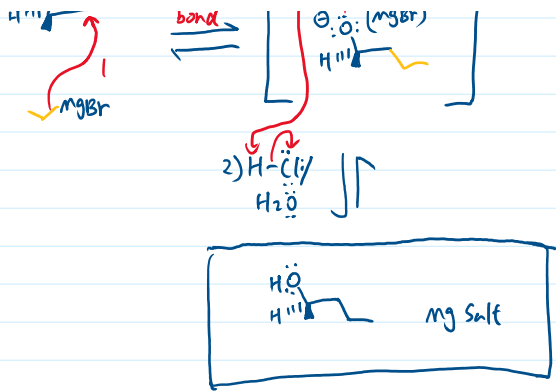 H bond ⊖ :Ö: (MgBr)
H
MgBr
2) H-Cl: /
H2O
HO
H Mg Salt